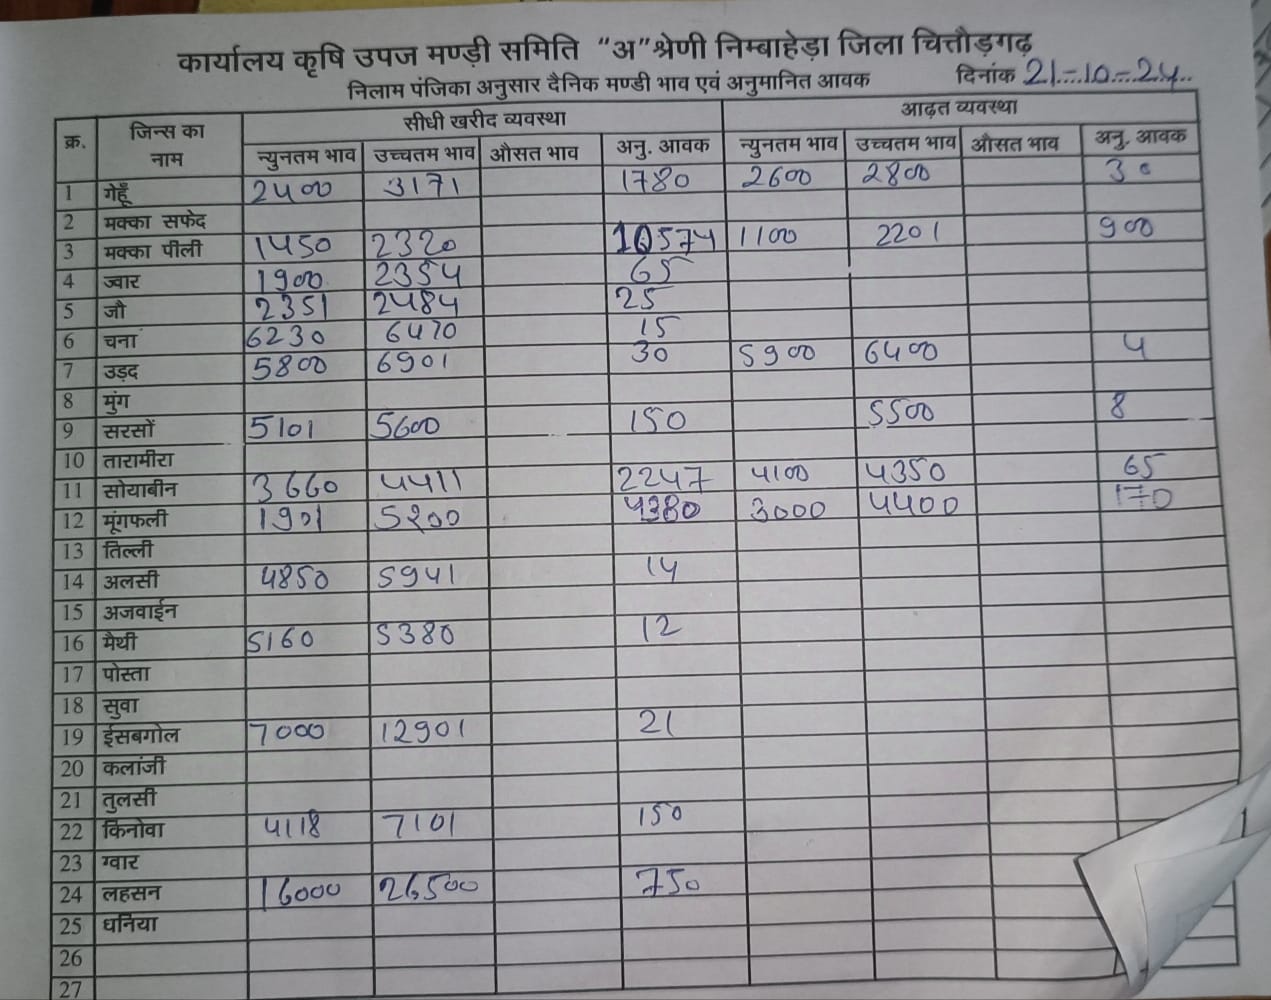 कार्यालय कृषि उपज मण्ड़ी समिति "अ" श्रेणी निम्बाहेड़ा जिला चित्तौड़गढ़
निलाम पंजिका अनुसार दैनिक मण्डी भाव एवं अनुमानित आवक दिनांक 21-10-24
क्र. जिन्स का नाम सीधी खरीद व्यवस्था आढ़त व्यवस्था
न्युनतम भाव उच्चतम भाव औसत भाव अनु. आवक न्युनतम भाव उच्चतम भाव औसत भाव अनु. आवक
1 गेहूँ 2400 3171 1780 2600 2800 30
2 मक्का सफेद
3 मक्का पीली 1450 2320 10574 1100 2201 900
4 ज्वार 1900 2354 65
5 जौ 2351 2484 25
6 चना 6230 6470 15
7 उड़द 5800 6901 30 5900 6400 4
8 मुंग
9 सरसों 5101 5600 150 5500 8
10 तारामीरा
11 सोयाबीन 3660 4411 2247 4100 4350 65
12 मूंगफली 1901 5200 4380 3000 4400 170
13 तिल्ली
14 अलसी 4850 5941 14
15 अजवाईन
16 मैथी 5160 5380 12
17 पोस्ता
18 सुवा
19 ईसबगोल 7000 12901 21
20 कलांजी
21 तुलसी
22 किनोवा 4118 7101 150
23 ग्वार
24 लहसन 16000 26500 750
25 धनिया
26
27